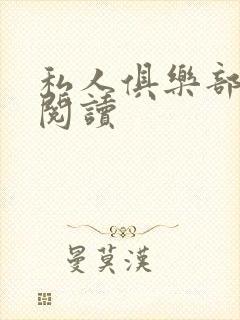 私人俱樂部
閱讀
曼莫漢